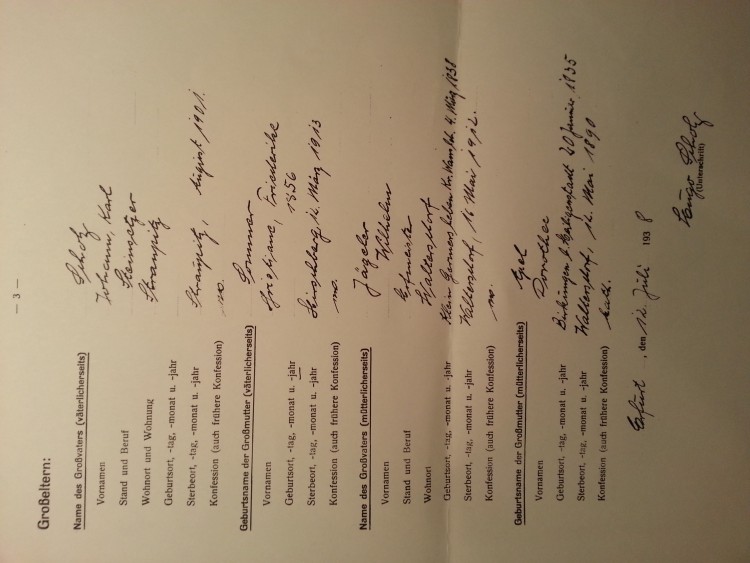 — 3 —
Großeltern:
Name des Großvaters (väterlicherseits) Scholz
Vornamen Johann, Karl
Stand und Beruf Steinsetzer
Wohnort und Wohnung Straupitz
Geburtsort, -tag, -monat u. -jahr
Sterbeort, -tag, -monat u. -jahr Straupitz, August 1901.
Konfession (auch frühere Konfession)
Geburtsname der Großmutter (väterlicherseits) Sommer
Vornamen Friederike
Geburtsort, -tag, -monat u. -jahr 1856
Sterbeort, -tag, -monat u. -jahr Hirschberg März 1913
Konfession (auch frühere Konfession)
Name des Großvaters (mütterlicherseits) Jägeler
Vornamen Wilhelm
Stand und Beruf
Wohnort Waltersdorf
Geburtsort, -tag, -monat u. -jahr Klein 4. März 1838
Sterbeort, -tag, -monat u. -jahr Waltersdorf, 16 Mai 1912.
Konfession (auch frühere Konfession)
Geburtsname der Großmutter (mütterlicherseits)
Vornamen Dorothee
Geburtsort, -tag, -monat u. -jahr Birkungen 20 Januar 1835
Sterbeort, -tag, -monat u. -jahr Waltersdorf, 12. Mai 1890
Konfession (auch frühere Konfession) kath.
Erfurt, den 12 Juli 1938
Scholz
(Unterschrift)